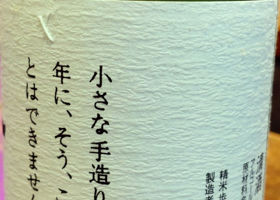 小さな手造り
年に、そう、こ
とはできません
アルコール
原材料
精米歩
製造者